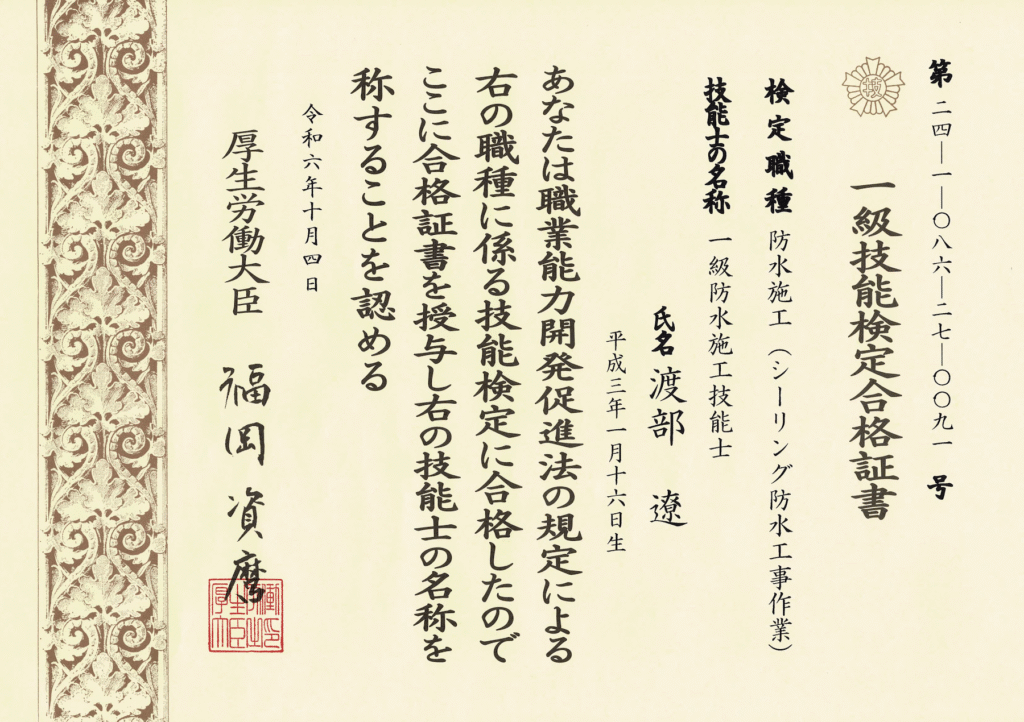 第 二四―一―〇八六―二七―〇〇九一 号
技
一級技能検定合格証書
検定職種 防水施工（シーリング防水工事作業）
技能士の名称 一級防水施工技能士
氏名 渡部 遼
平成三年一月十六日生
あなたは職業能力開発促進法の規定による
右の職種に係る技能検定に合格したので
ここに合格証書を授与し右の技能士の名称を
称することを認める
令和六年十月四日
厚生労働大臣 福岡資麿